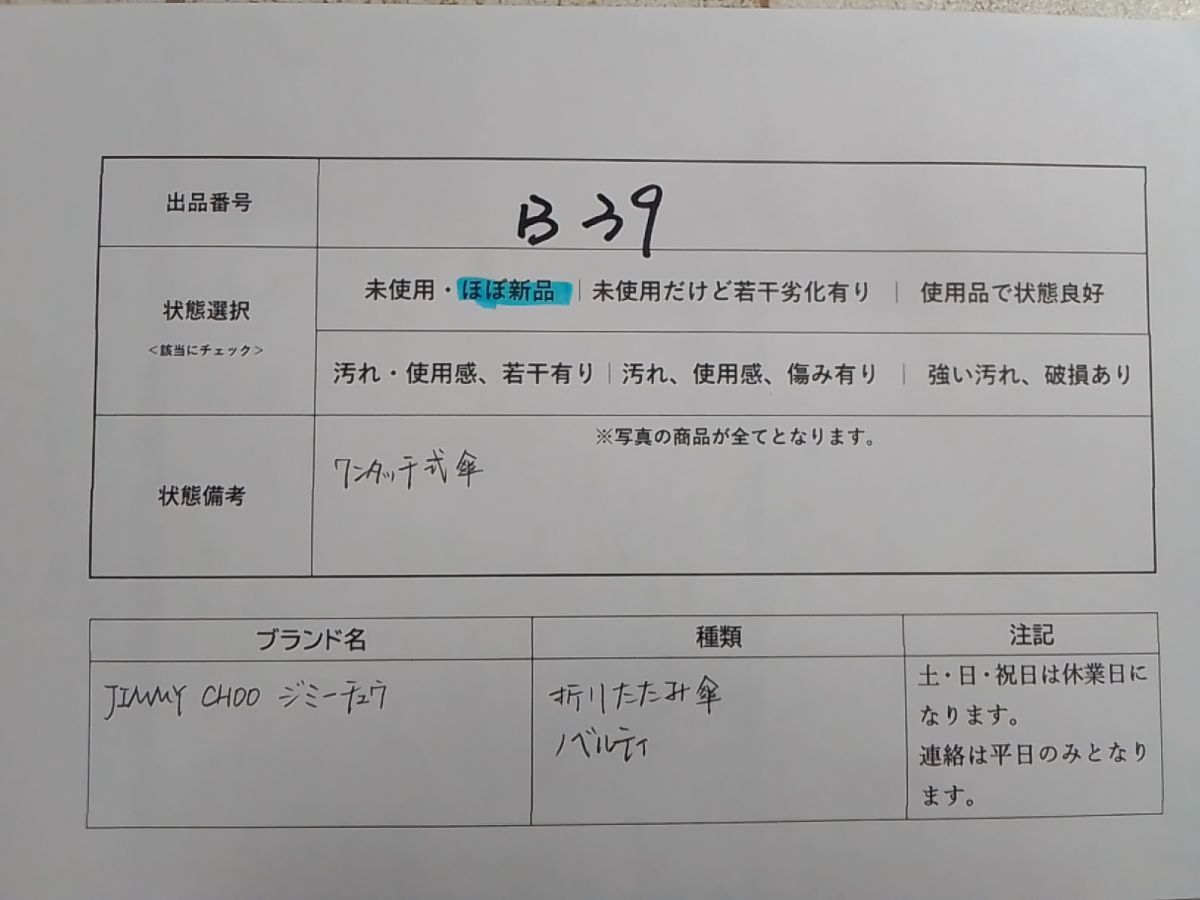 出品番号
B 39
状態選択
<該当にチェック>
未使用・ほぼ新品｜未使用だけど若干劣化有り｜使用品で状態良好
汚れ・使用感、若干有り｜汚れ、使用感、傷み有り｜強い汚れ、破損あり
状態備考
※写真の商品が全てとなります。
ワンタッチ式傘
ブランド名
種類
注記
JIMMY CHOO ジミーチュウ
折りたたみ傘
ノベルティ
土・日・祝日は休業日に
なります。
連絡は平日のみとなり
ます。